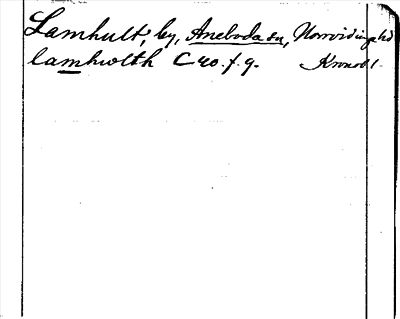 Lamhult, by, Aneboda sn, Norrvidinge hd
lamhwlth C 20. f. 9. Kronob l.